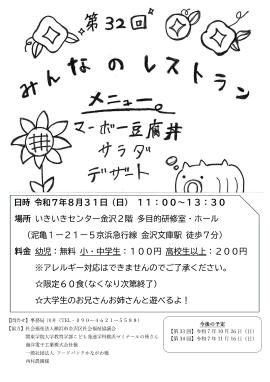 第32回
みんなのレストラン
メニュー。
マーボー豆腐丼
サラダ
デザート
日時 令和7年8月31日(日) 11:00~13:30
場所 いきいきセンター金沢2階 多目的研修室・ホール
(泥亀1-21-5京浜急行線 金沢文庫駅 徒歩7分)
料金 幼児:無料 小・中学生:100円 高校生以上:200円
※アレルギー対応はできませんのでご了承ください。
☆限定60食(なくなり次第終了)
☆大学生のお兄さんお姉さんと遊べるよ!
今後の予定
【第33回】令和7年10月26日(日)
【第34回】令和7年11月16日(日)
【協力】社会福祉法人横浜市金沢区社会福祉協議会
海洋電子工業株式会社様
一般社団法人 フードバンクかながわ様